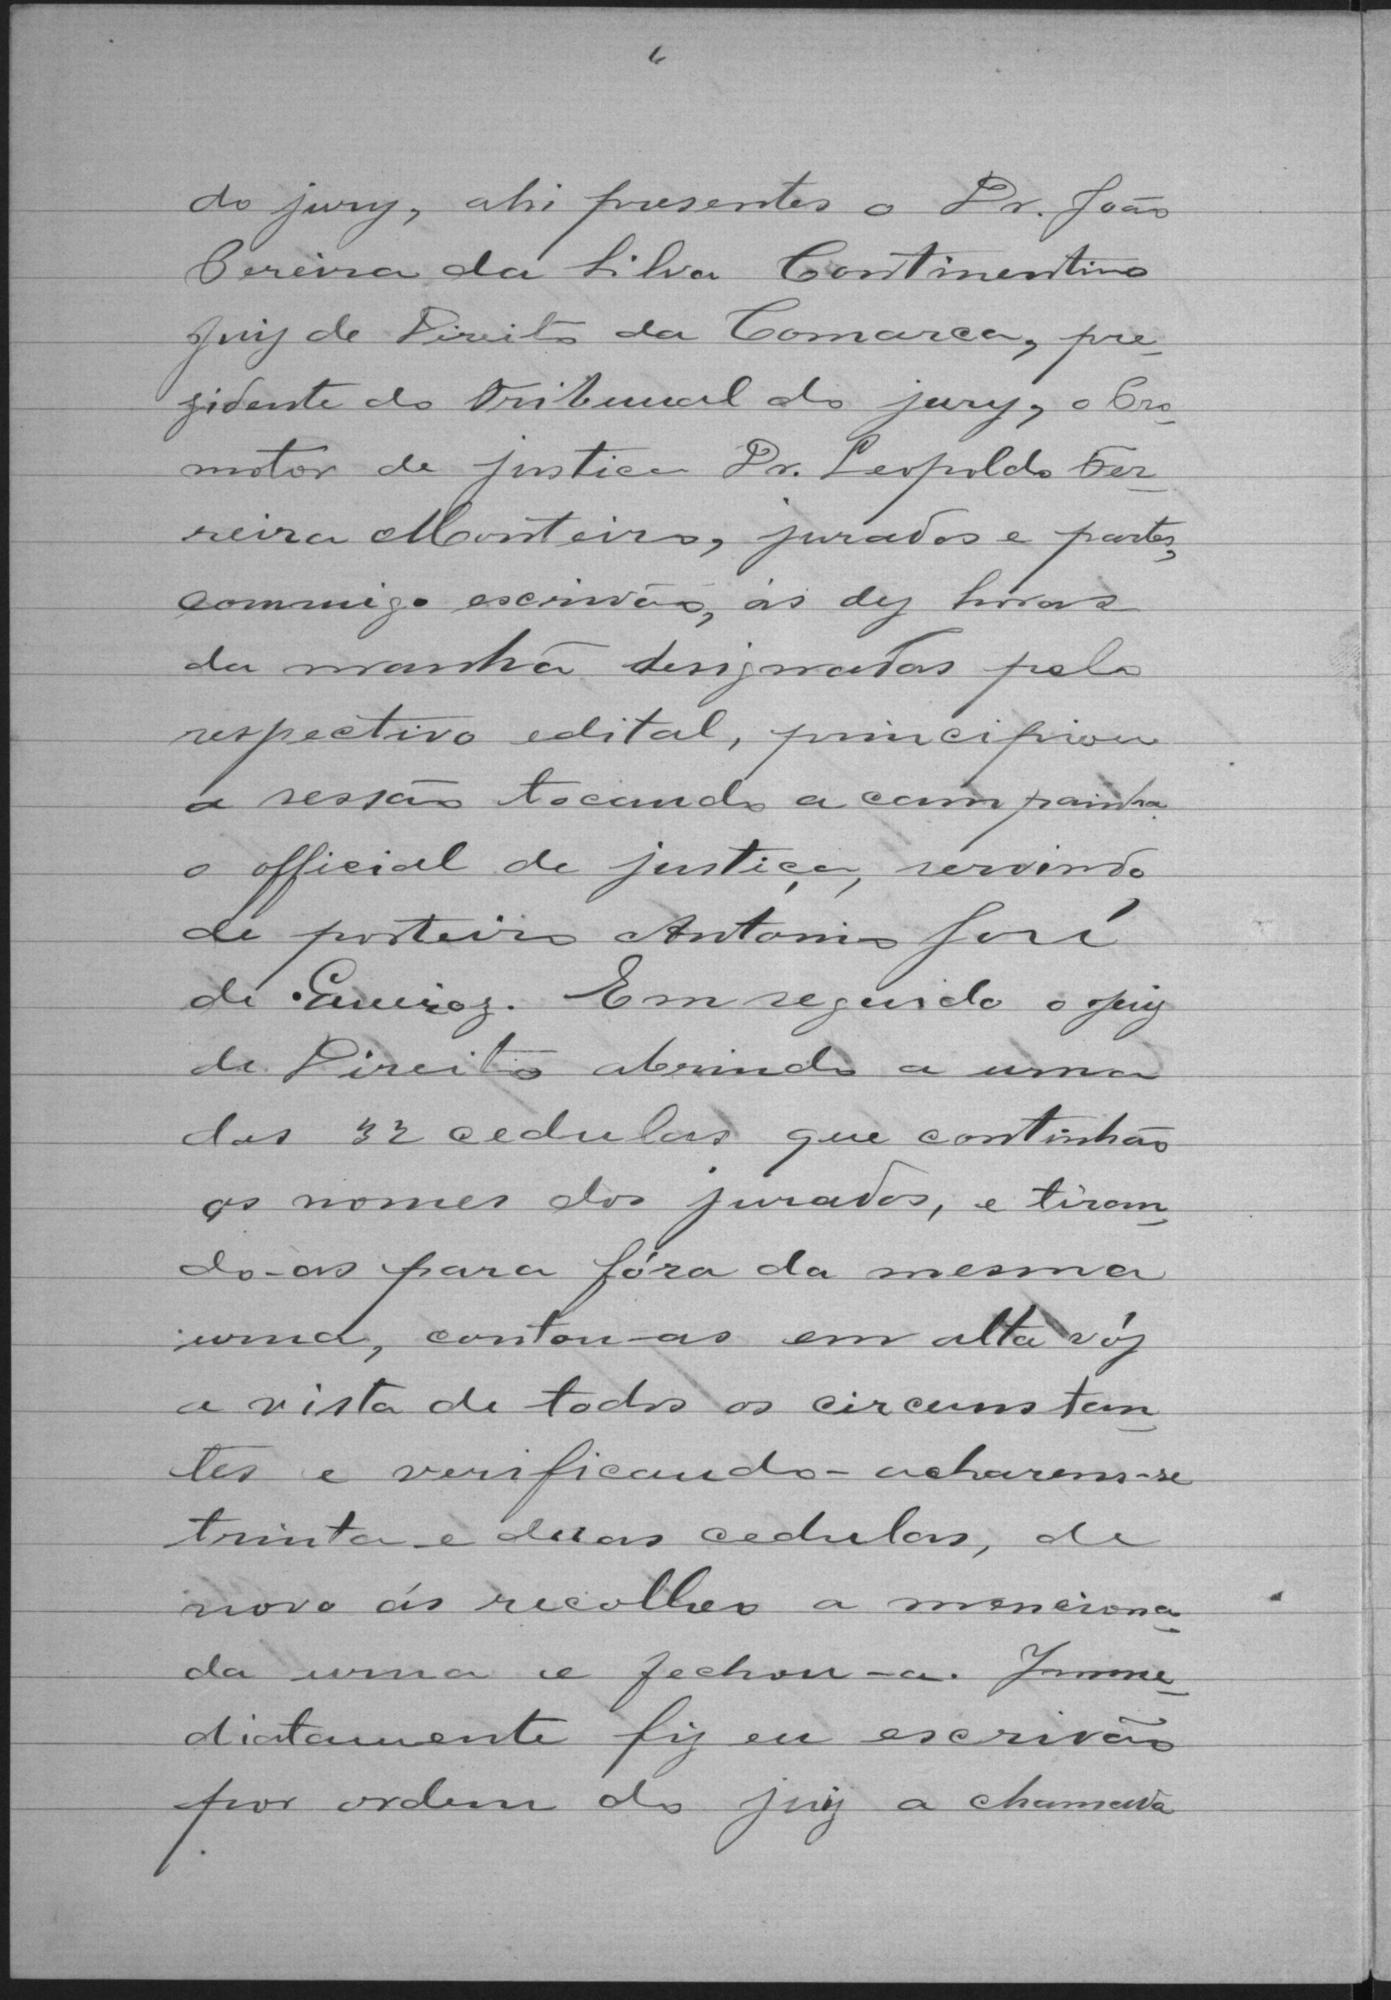 do jury, ahi presentes o Dr. João
Pereira da Silva Continentino
Juiz de Direito da Comarca, pre-
zidente do Tribunal do jury, o Pro-
motor de justiça Dr. Leopoldo Fer-
reira Monteiro, jurados e partes,
commigo escrivão, ás dez horas
da manhã designadas pelo
respectivo edital, principiou
a sessão tocando a campainha
o official de justiça, servindo
de porteiro António José
de Queiroz. Em seguida o juiz
de Direito abrindo a urna
das 32 cedulas que continhão
os nomes dos jurados, e tiran-
do-as para fóra da mesma
urna, contou-as em alta vóz
a vista de todos os circumstan-
tes e verificando-acharem-se
trinta e duas cedulas, de
novo ás recolheo a menciona-
da urna e fechou-a. Imme-
diatamente fiz eu escrivão
por ordem do juiz a chamada